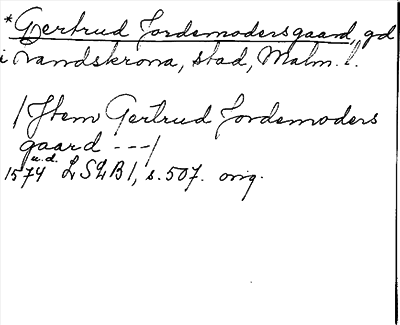 *Gertrud Jordemodersgaard, gd
i Landskrona, stad, Malm. l.
/Jtem Gertrud Jordemoders
gaard ---/
u.d.
1574 LSLB1, s. 507. orig.